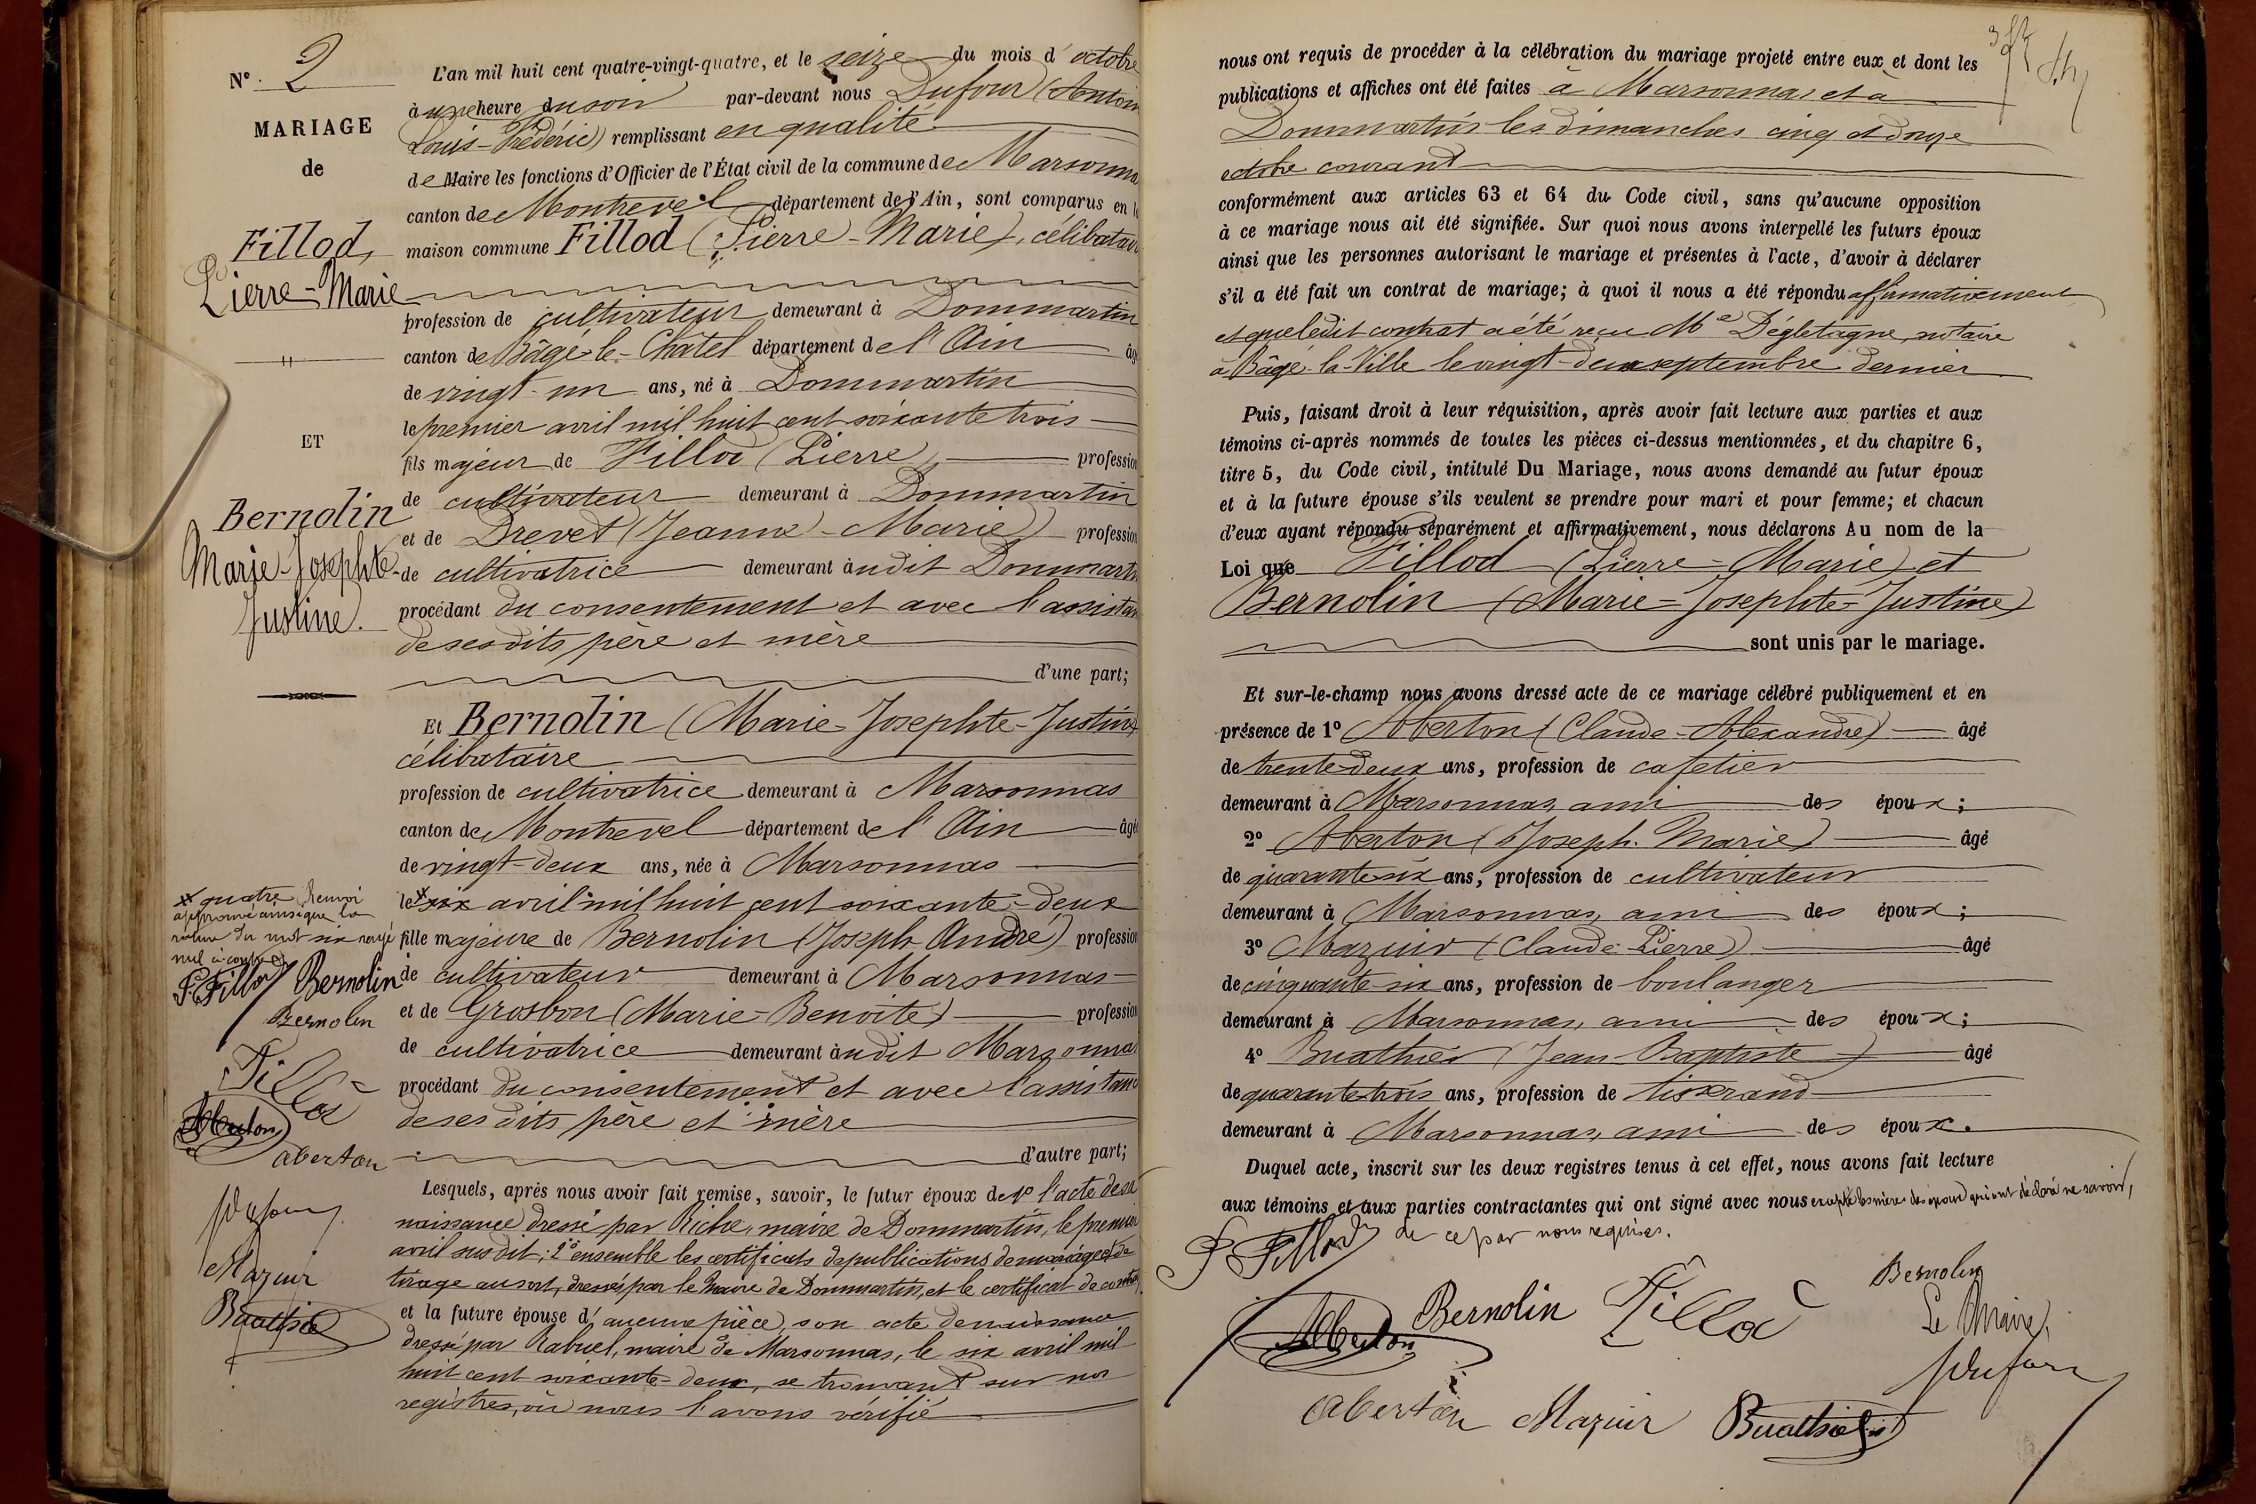 N° 2
MARIAGE
de
Fillod,
Pierre-Marie
ET
Bernolin
Marie-Josephte-
Justine.
L'an mil huit cent quatre-vingt-quatre, et le seize du mois d'octobre
à une heure du soir par-devant nous Dufour (Antoin
Louis-Frédéric) remplissant en qualité
de Maire les fonctions d'Officier de l'État civil de la commune de Marsonna
canton de Montrevel département de l'Ain, sont comparus en l
maison commune Fillod (Pierre-Marie), célibataire
profession de cultivateur demeurant à Dommartin
canton de Bâgé-le-Châtel département de l'Ain âgé
de vingt-un ans, né à Dommartin
le premier avril mil huit cent soixante trois
fils majeur de Fillod (Pierre) profession
de cultivateur demeurant à Dommartin
et de Drevet (Jeanne-Marie) profession
de cultivatrice demeurant à udit Dommartin
procédant du consentement et avec l'assistan
de ses dits père et mère
d'une part;
Et Bernolin (Marie-Josephte-Justine)
célibataire
profession de cultivatrice demeurant à Marsonnas
canton de Montrevel département de l'Ain âgée
de vingt-deux ans, née à Marsonnas
le x six avril mil huit cent soixante-deux
fille majeure de Bernolin (Joseph-André) profession
de cultivateur demeurant à Marsonnas
et de Grosbon (Marie-Benoite) profession
de cultivatrice demeurant à udit Marsonnas
procédant du consentement et avec l'assistanc
de ses dits père et mère
d'autre part;
Lesquels, après nous avoir fait remise, savoir, le futur époux de 1° l'acte de sa
naissance dressé par Riche, maire de Dommartin, le premier
avril susdit; 2° ensemble les certificats de publications de mariage et de
tirage au sort, dressés par le Maire de Dommartin, et le certificat de contrat
et la future épouse d'aucune pièce, son acte de naissance
dressé par Rabuel, maire de Marsonnas, le six avril mil
huit cent soixante-deux, se trouvant sur nos
registres, où nous l'avons vérifié
x quatre Renvoi
approuvé ainsi que la
rature du mot six rayé
nul ci-contre
P. Fillod Bernolin
Bernolin
Fillod
Aberton
aberton
Dufour
Mazuir
Buathier
nous ont requis de procéder à la célébration du mariage projeté entre eux et dont les
publications et affiches ont été faites à Marsonnas et à
Dommartin les dimanches cinq et douze
octobre courant
conformément aux articles 63 et 64 du Code civil, sans qu'aucune opposition
à ce mariage nous ait été signifiée. Sur quoi nous avons interpellé les futurs époux
ainsi que les personnes autorisant le mariage et présentes à l'acte, d'avoir à déclarer
s'il a été fait un contrat de mariage; à quoi il nous a été répondu affirmativement
et que ledit contrat a été reçu Me Dégletagne, notaire
à Bâgé-la-Ville le vingt-deux septembre dernier
Puis, faisant droit à leur réquisition, après avoir fait lecture aux parties et aux
témoins ci-après nommés de toutes les pièces ci-dessus mentionnées, et du chapitre 6,
titre 5, du Code civil, intitulé Du Mariage, nous avons demandé au futur époux
et à la future épouse s'ils veulent se prendre pour mari et pour femme; et chacun
d'eux ayant répondu séparément et affirmativement, nous déclarons Au nom de la
Loi que Fillod (Pierre-Marie) et
Bernolin (Marie-Josephte-Justine)
sont unis par le mariage.
Et sur-le-champ nous avons dressé acte de ce mariage célébré publiquement et en
présence de 1° Aberton (Claude-Alexandre) âgé
de trente-deux ans, profession de cafetier
demeurant à Marsonnas, ami des époux;
2° Aberton (Joseph-Marie) âgé
de quarante-six ans, profession de cultivateur
demeurant à Marsonnas, ami des époux;
3° Mazuir (Claude-Pierre) âgé
de cinquante-six ans, profession de boulanger
demeurant à Marsonnas, ami des époux;
4° Buathier (Jean-Baptiste) âgé
de quarante-trois ans, profession de tisserand
demeurant à Marsonnas, ami des époux.
Duquel acte, inscrit sur les deux registres tenus à cet effet, nous avons fait lecture
aux témoins et aux parties contractantes qui ont signé avec nous excepté les mères des époux qui ont déclaré ne savoir,
de ce par nous requises.
P. Fillod
Bernolin
Aberton Bernolin Fillod
Le Maire,
Dufour
aberton Mazuir Buathier